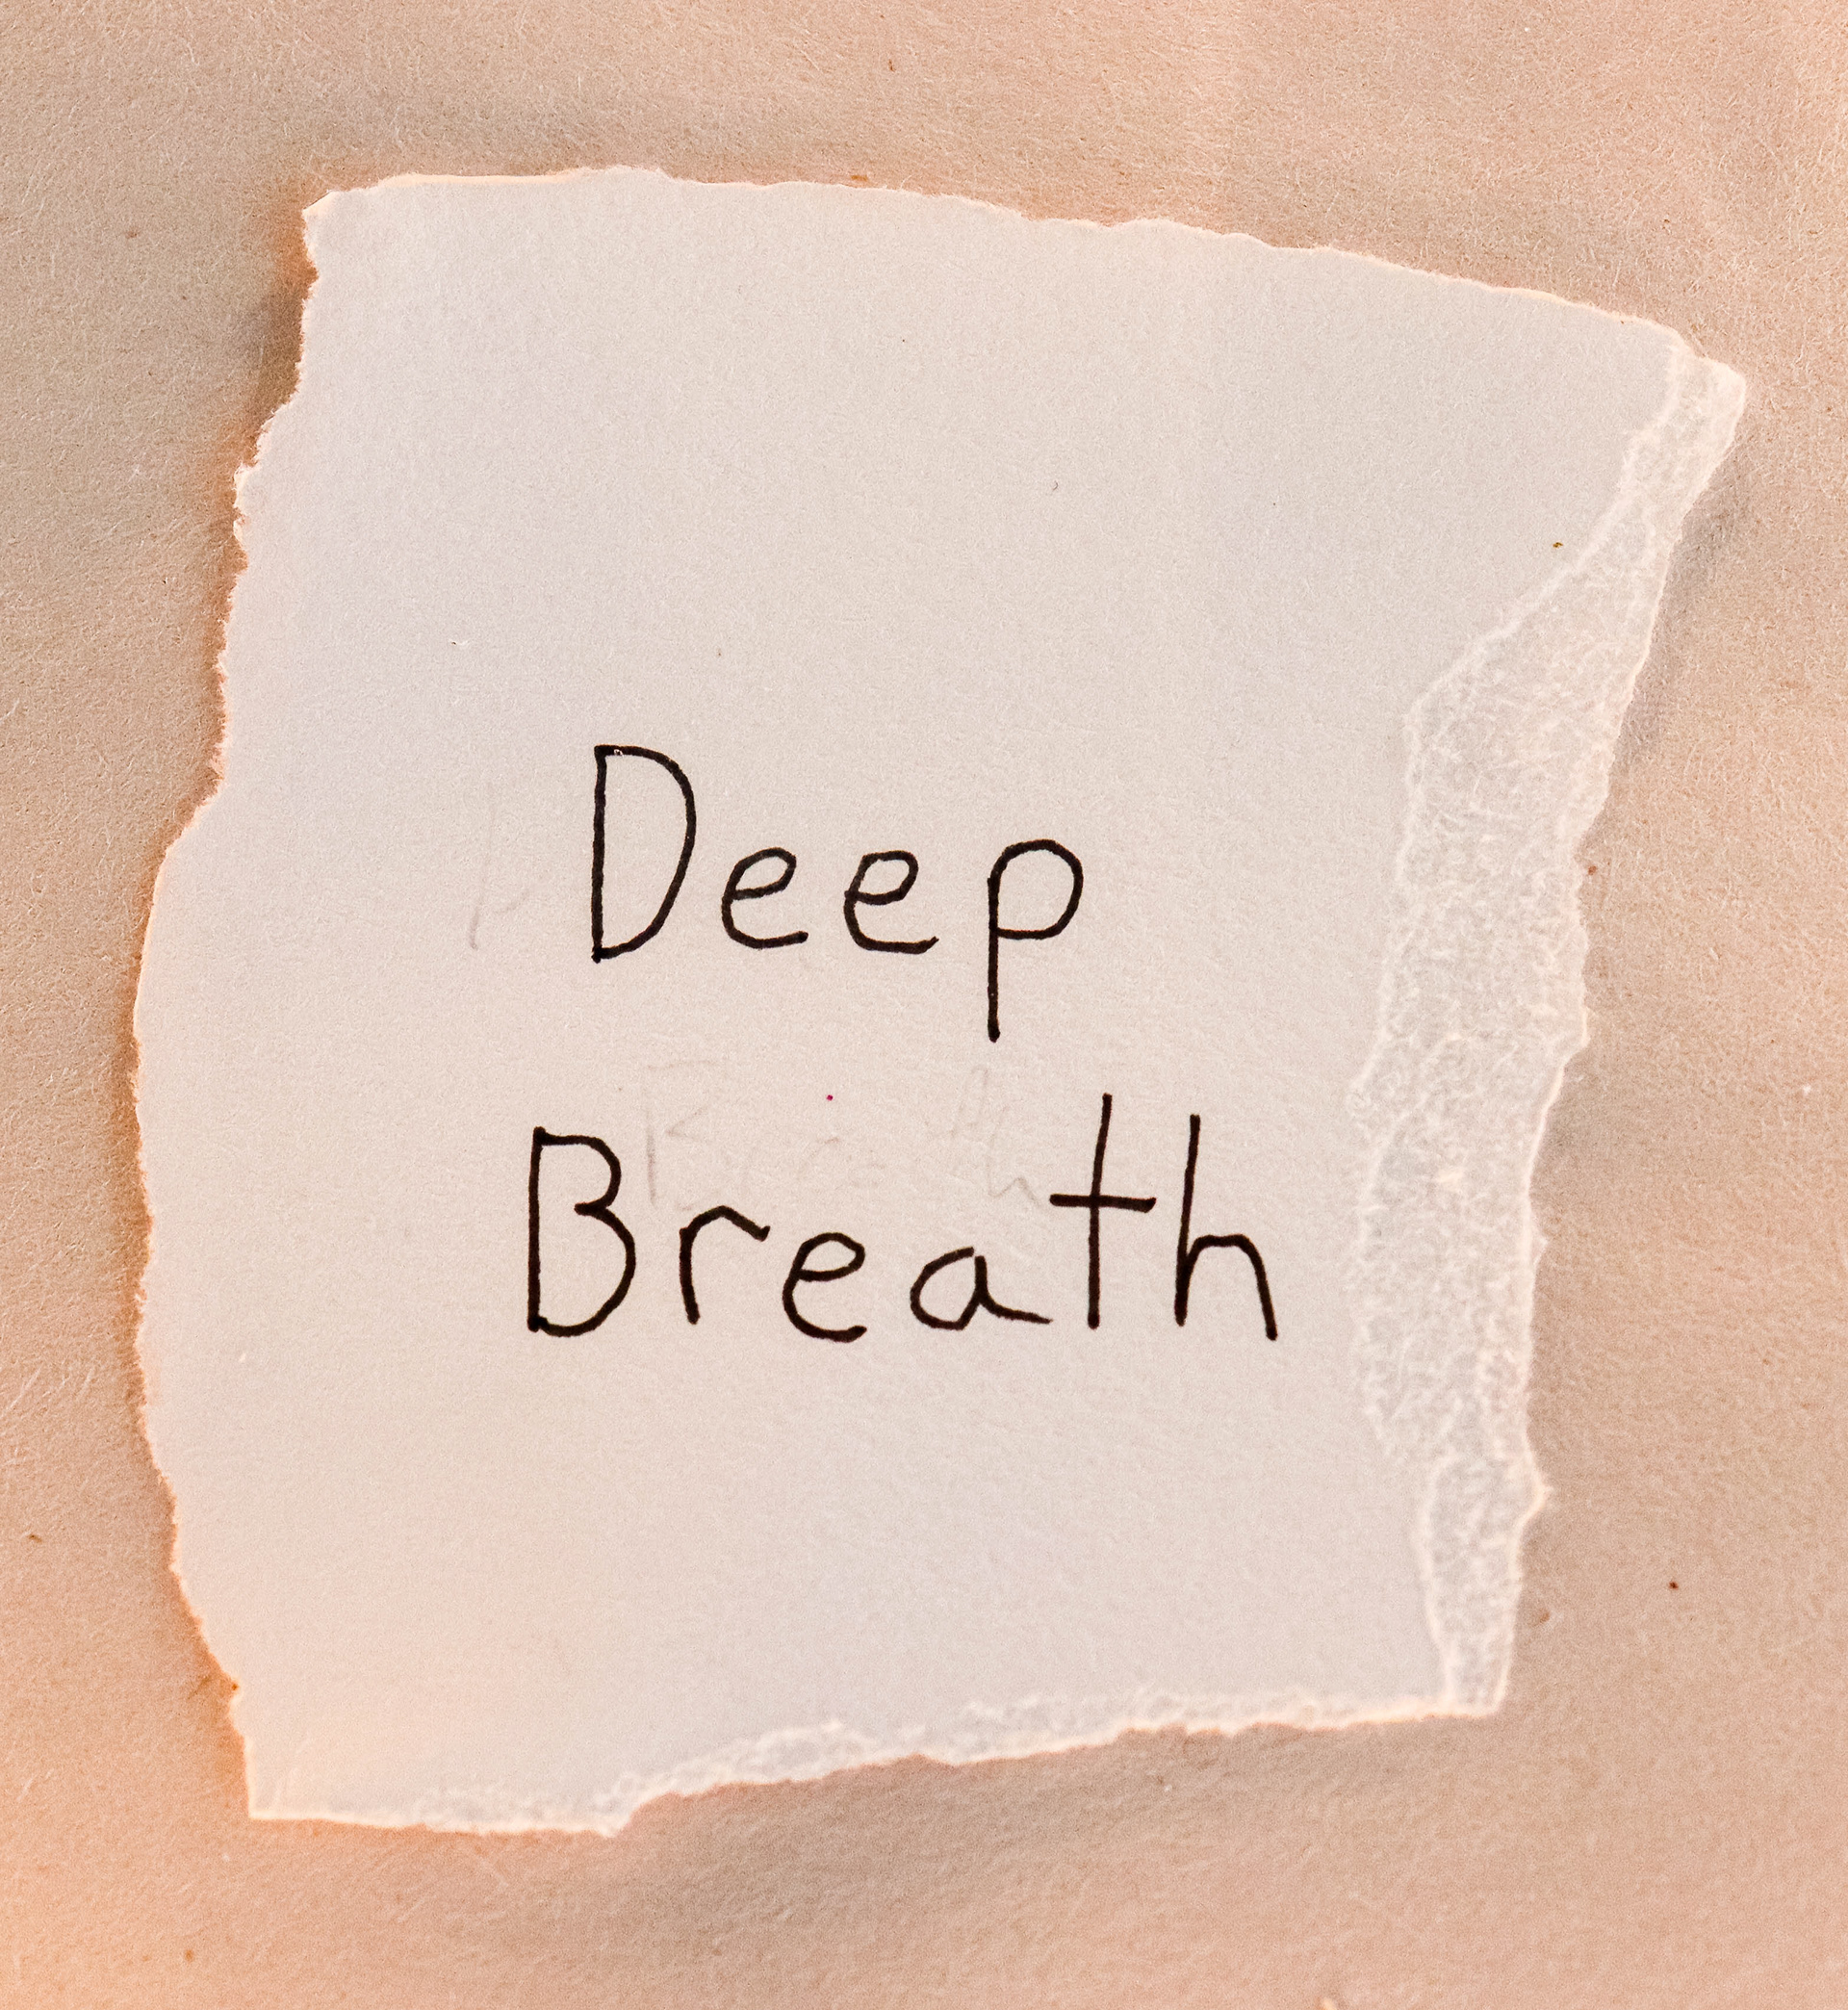 Deep
Breath